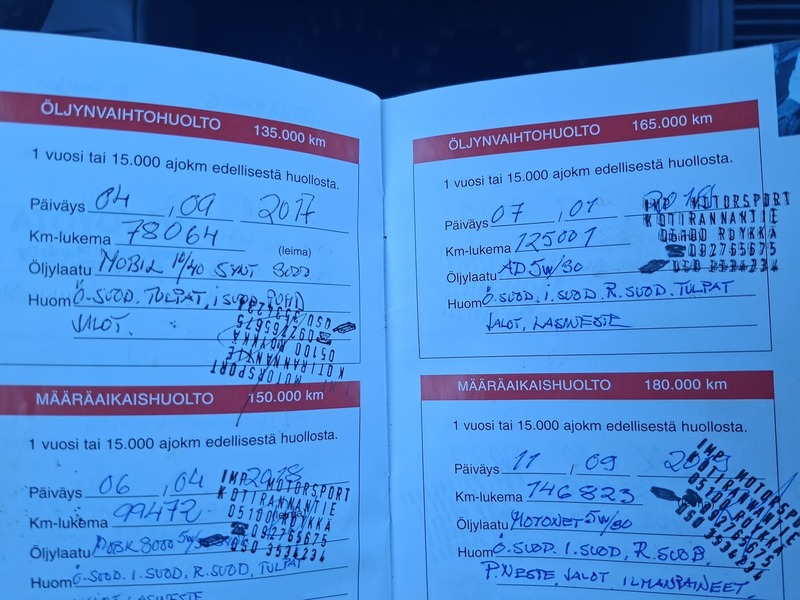 ÖLJYNVAIHTOHUOLTO 135.000 km
1 vuosi tai 15.000 ajokm edellisestä huollosta.
Päiväys 04 , 09 2017
Km-lukema 78064
(leima)
Öljylaatu MOBIL 10/40 SYNT
Huom Ö.SUOD. TULPAT, I SUOD. PUHD
JALOT.
MOTORSPORT
KOTIRANNANTIE
05100 RÖYKKÄ
092765675
050 3534234
MÄÄRÄAIKAISHUOLTO 150.000 km
1 vuosi tai 15.000 ajokm edellisestä huollosta.
Päiväys 06 , 04 2018
Km-lukema 99472
Öljylaatu 8000 5W/
Huom Ö-SUOD. I.SUOD, R.SUOD, TULPAT
LASINESTE
IMP MOTORSPORT
KOTIRANNANTIE
05100 RÖYKKÄ
092765675
050 3534234
ÖLJYNVAIHTOHUOLTO 165.000 km
1 vuosi tai 15.000 ajokm edellisestä huollosta.
Päiväys 07 , 01
Km-lukema 125001
Öljylaatu AD 5W/30
Huom Ö.SUOD. I.SUOD, R.SUOD. TULPAT
JALOT, LASINESTE
IMP MOTORSPORT
KOTIRANNANTIE
05100 RÖYKKÄ
092765675
050 3534234
MÄÄRÄAIKAISHUOLTO 180.000 km
1 vuosi tai 15.000 ajokm edellisestä huollosta.
Päiväys 11 , 09 2019
Km-lukema 146823
Öljylaatu MOTONET 5W/30
Huom Ö.SUOD. I.SUOD, R.SUOD.
P.NESTE. JALOT ILMANPAINEET,
IMP MOTORSPORT
KOTIRANNANTIE
05100 RÖYKKÄ
092765675
050 3534234